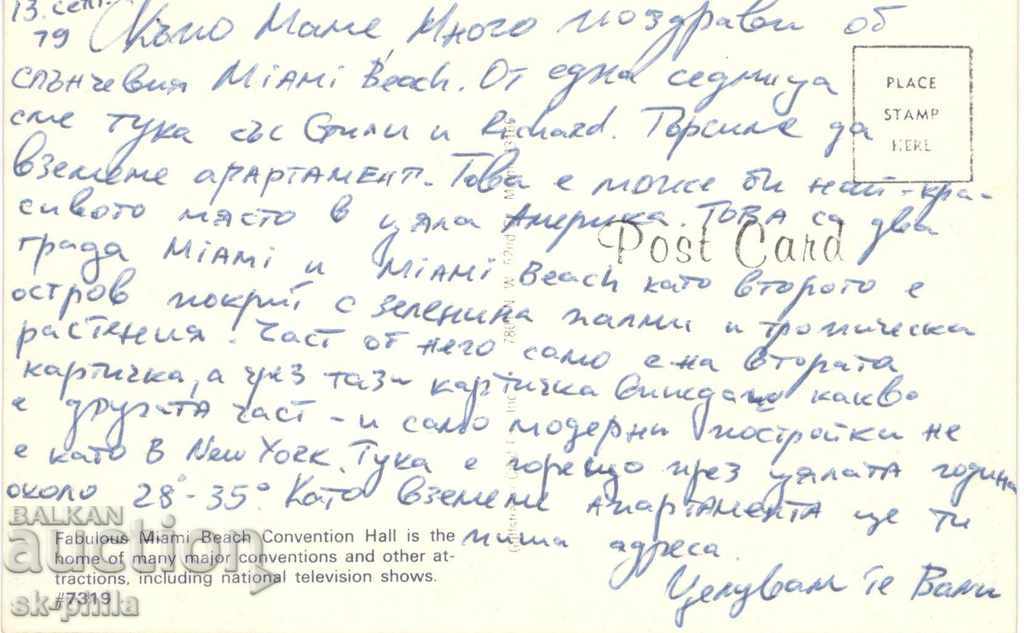 13. септ.
79 Скъпо Маме, Много поздрави от
слънчевия Miami Beach. От една седмица
сме тука със Стили и Richard. Търсиме да
вземеме апартамент. Това е може би най-кра-
сивото място в цяла Америка. Това са два
града Miami и Miami Beach като второто е
остров покрит с зеленина палми и тропически
растения. Част от него само е на втората
картичка, а чрез тази картичка виждаш какво
е другата част - и само модерни постройки не
е като в New York. Тука е горещо през цялата година
около 28° - 35° Като вземеме апартамента ще ти
пиша адреса.
Целувам те Вали
PLACE
STAMP
HERE
Post Card
Fabulous Miami Beach Convention Hall is the
home of many major conventions and other at-
tractions, including national television shows.
#7319
BALKAN
auction
sk-philla